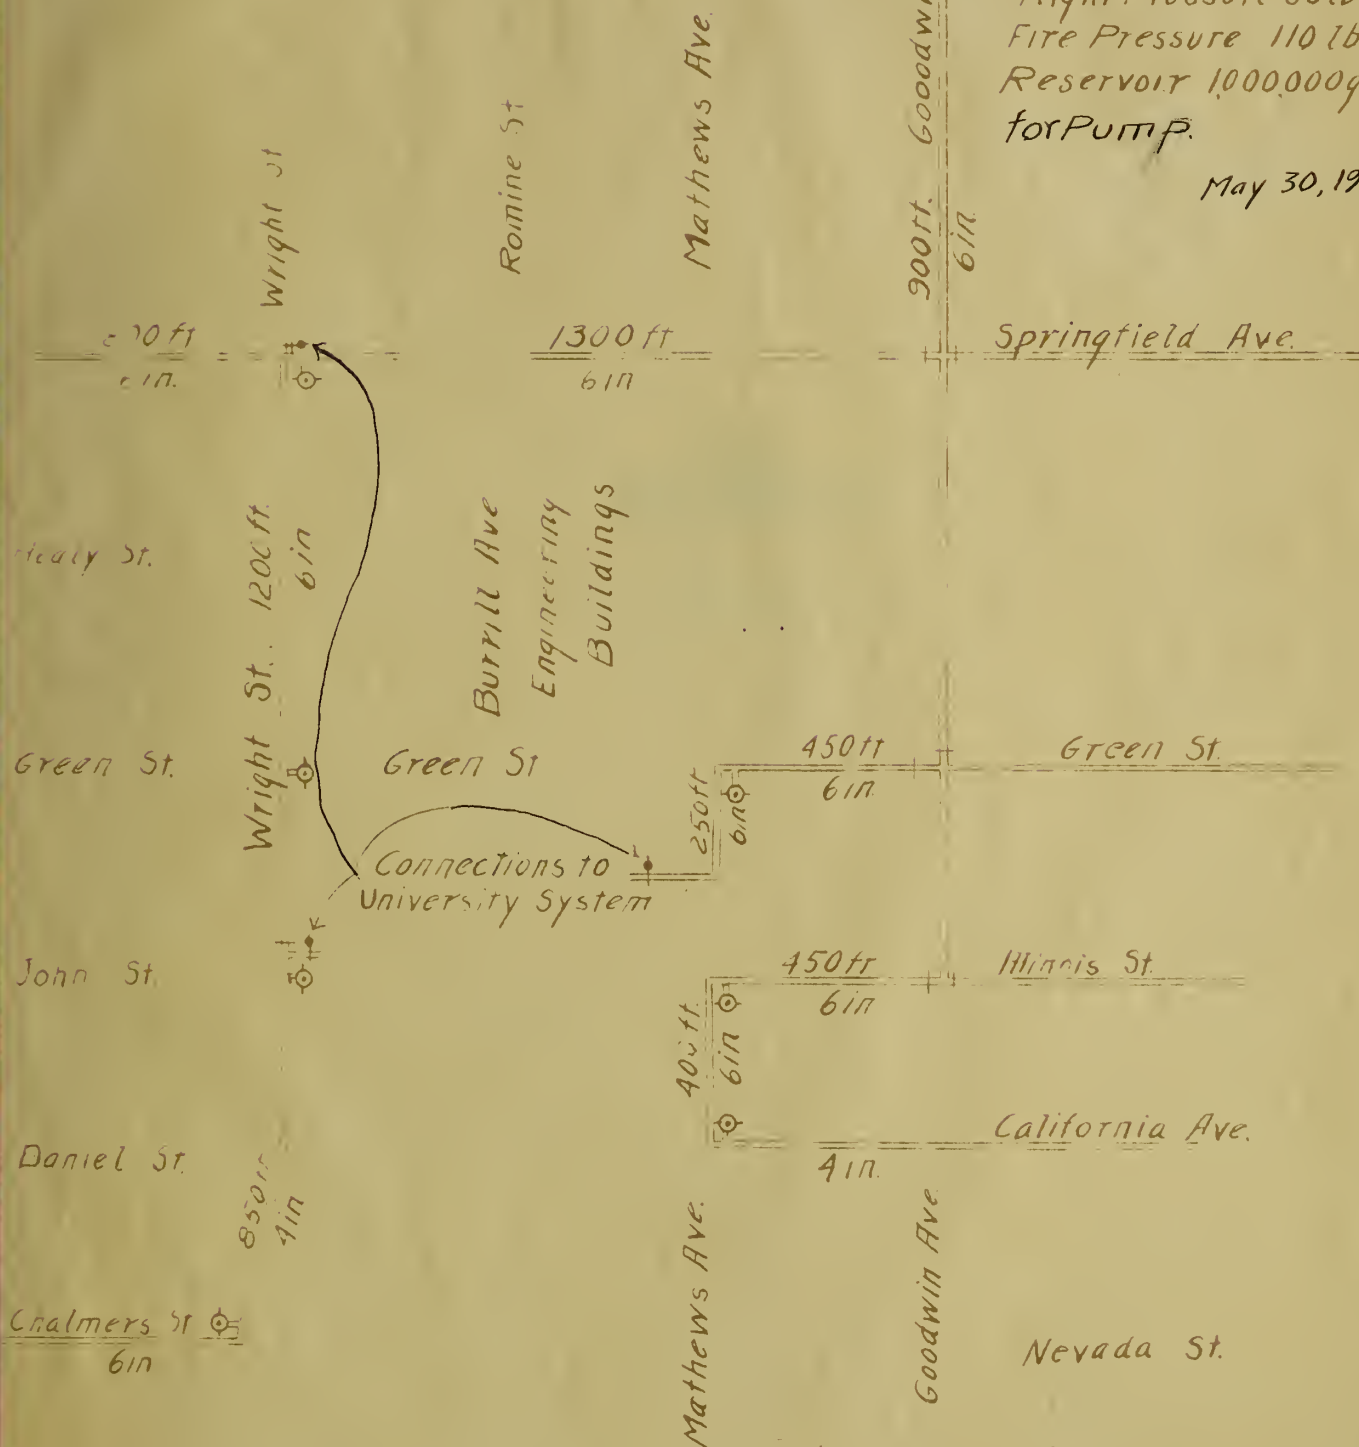 Fire Pressure 110 lb
Reservoir 1,000,000g
for Pump.
May 30, 19
Wright St
Romine St
Mathews Ave.
900 ft. Gooodwi
6 in.
0 ft
in.
1300 ft
6 in
Springfield Ave.
Healy St.
Wright St. 1200 ft.
6 in
Burrill Ave
Engineering
Buildings
Green St.
Green St
450 ft
6 in.
Green St.
250 ft
6 in
Connections to
University System
John St.
450 ft
6 in
Illinois St.
400 ft.
6 in
Daniel St.
850 ft
4 in
California Ave.
4 in.
Chalmers St
6 in
Mathews Ave.
Goodwin Ave.
Nevada St.